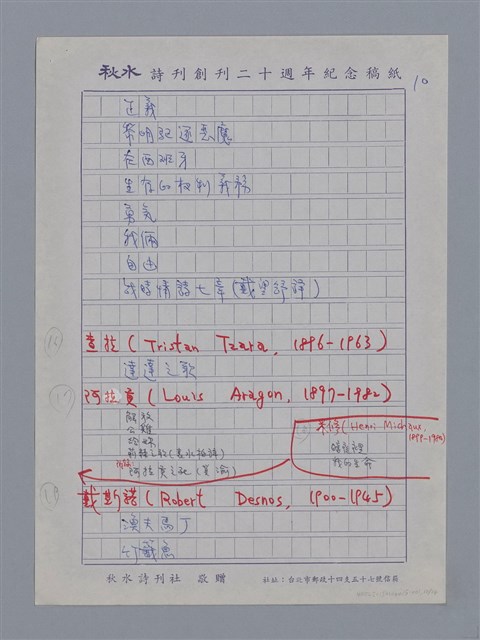 秋水 詩刊創刊二十週年紀念稿紙
10
正義
黎明驅逐惡魔
在西班牙
生存的权利義務
勇氣
我倆
自由
战時情詩七章(戴望舒譯)
查拉(Tristan Tzara, 1896-1963)
達達之歌
阿拉貢(Louis Aragon, 1897-1982)
米修(Henri Michaux, 1899-1984)
暗夜裡
我的生命
附錄:
戴斯諾(Robert Desnos, 1900-1945)
漁夫馬丁
秋水詩刊社 敬贈
社址:台北市郵政十四支五十七號信箱